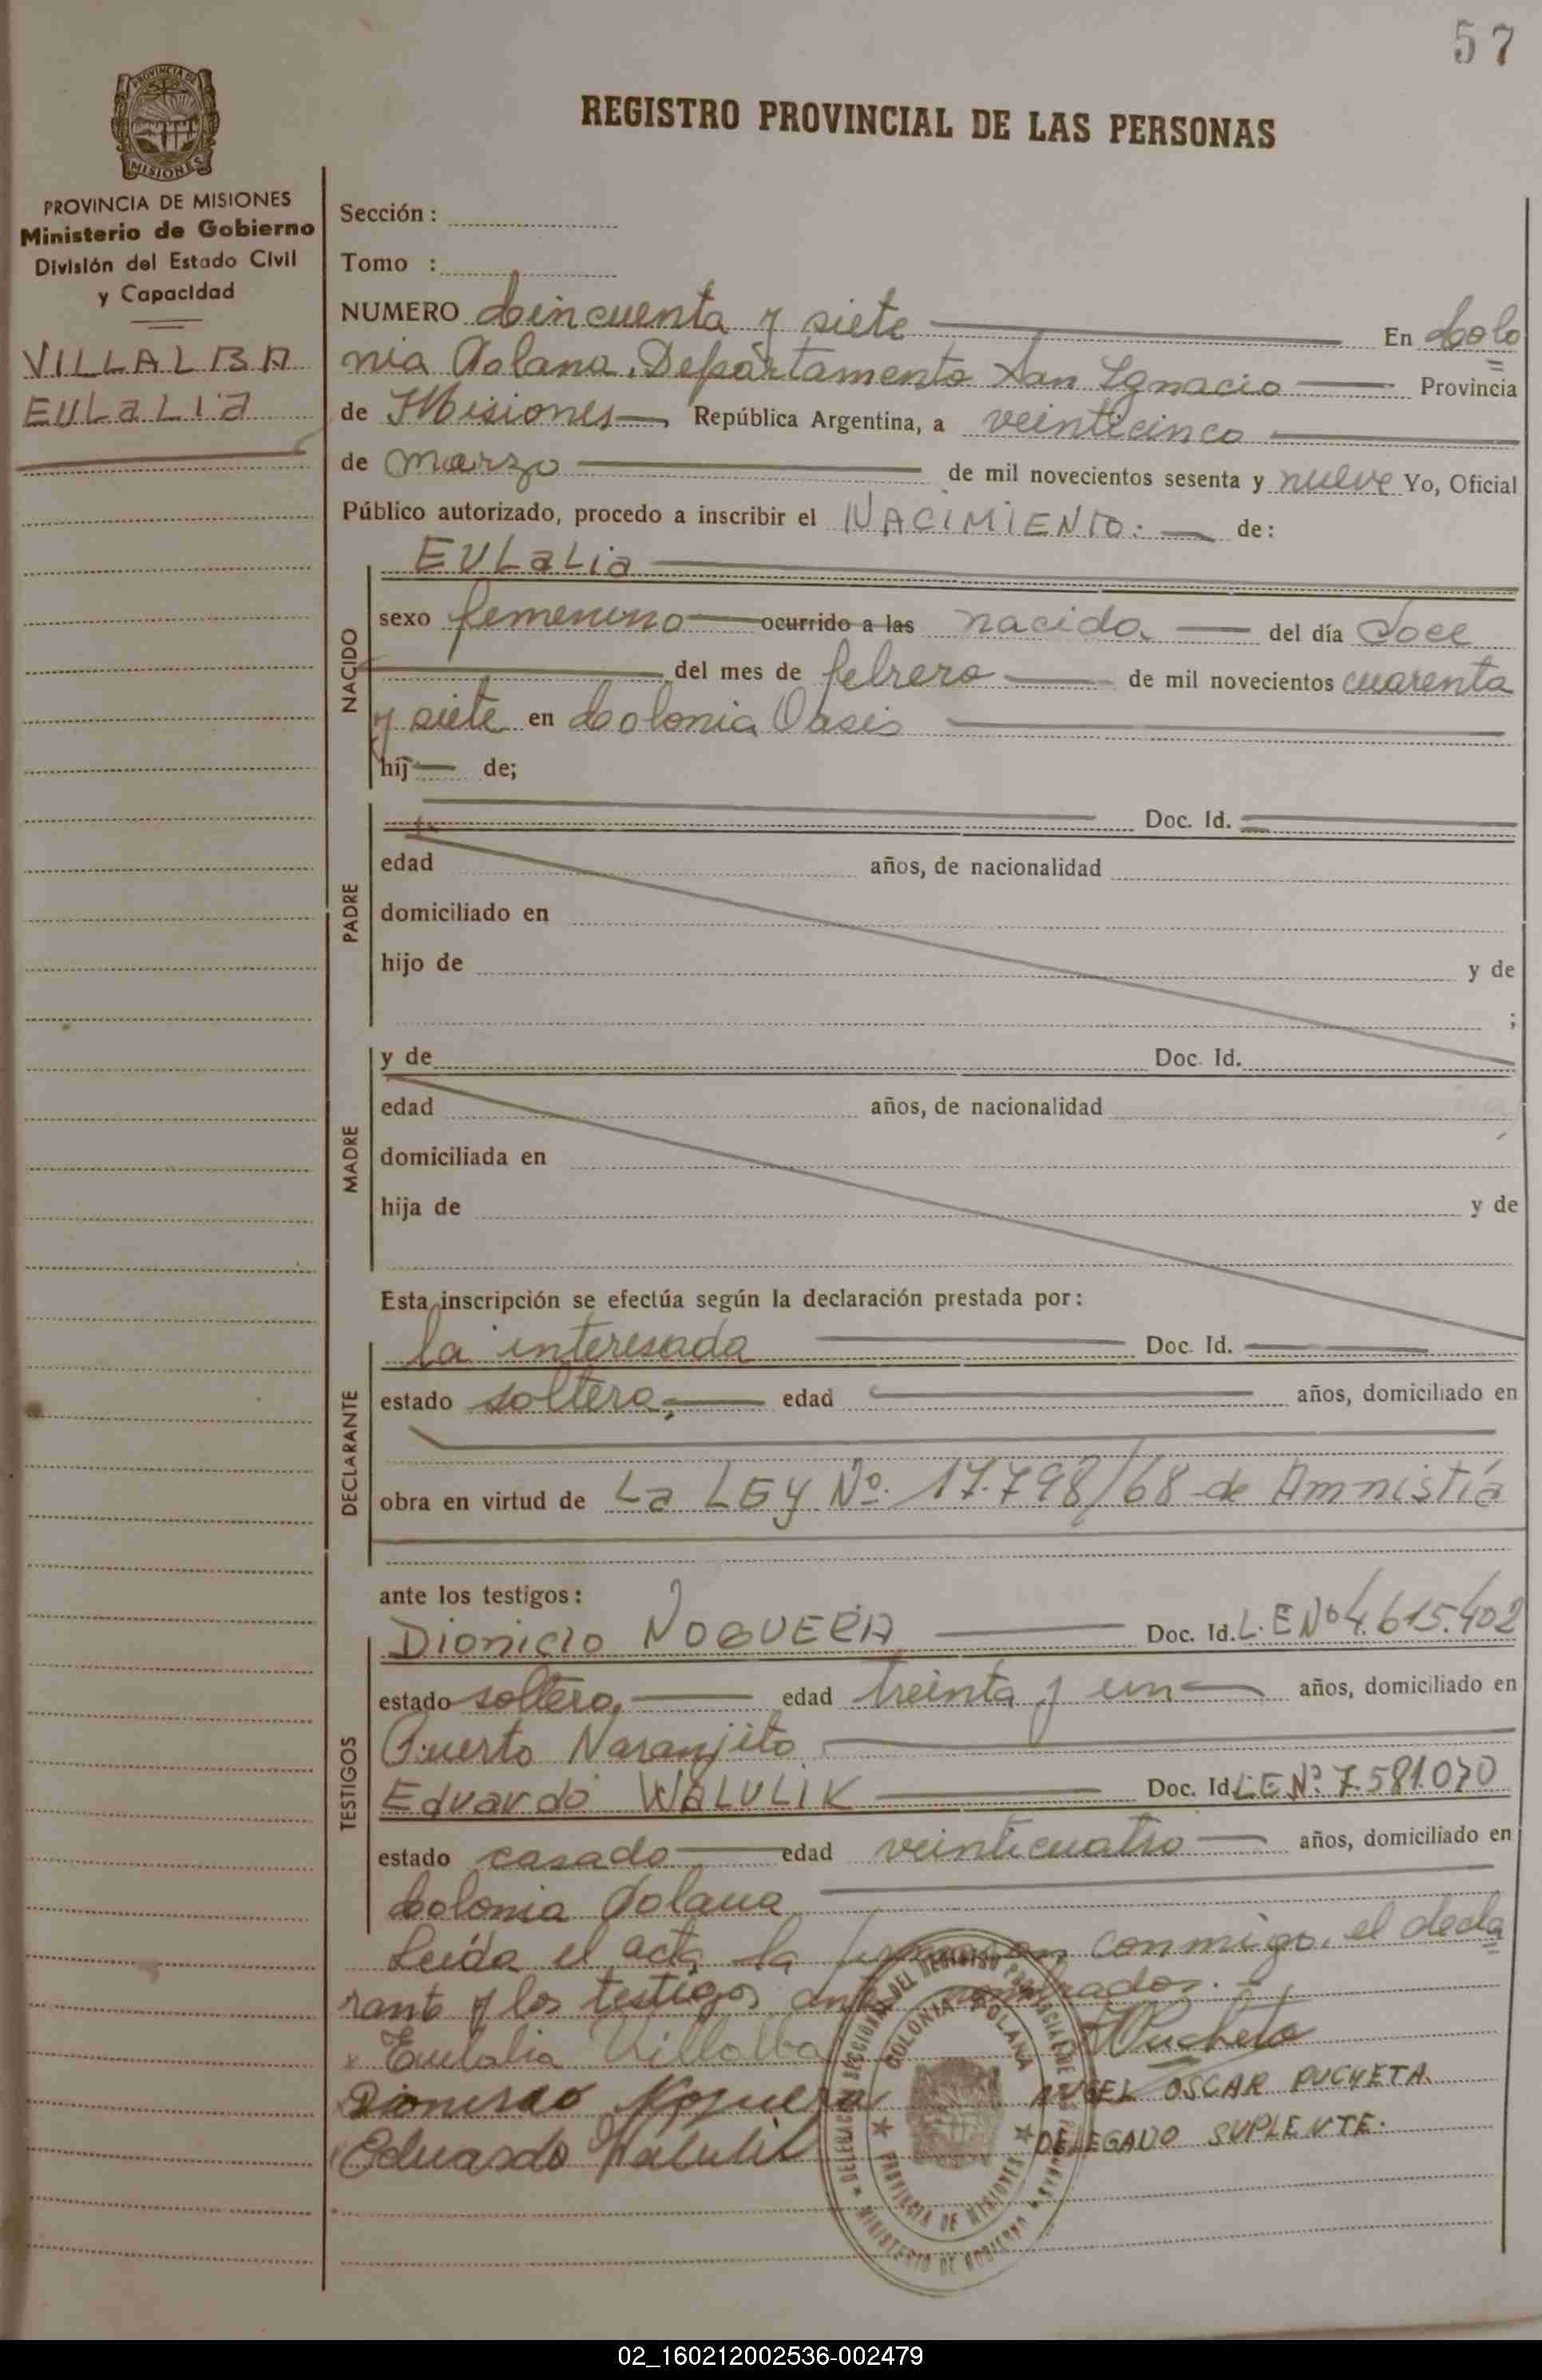 57
PROVINCIA DE
MISIONES
REGISTRO PROVINCIAL DE LAS PERSONAS
PROVINCIA DE MISIONES
Ministerio de Gobierno
División del Estado Civil
y Capacidad
VILLALBA
EULALIA
Sección :
Tomo :
NUMERO Cincuenta y siete En Colo
nia Polana, Departamento San Ignacio Provincia
de Misiones República Argentina, a veinticinco
de marzo de mil novecientos sesenta y nueve Yo, Oficial
Público autorizado, procedo a inscribir el NACIMIENTO: de:
NACIDO
EULALIA
sexo femenino ocurrido a las nacida del día doce
del mes de febrero de mil novecientos cuarenta
y siete en Colonia Oasis
hij de;
PADRE
Doc. Id.
edad años, de nacionalidad
domiciliado en
hijo de y de
;
MADRE
y de Doc. Id.
edad años, de nacionalidad
domiciliada en
hija de y de
Esta inscripción se efectúa según la declaración prestada por:
DECLARANTE
la interesada Doc. Id.
estado soltera, edad años, domiciliado en
obra en virtud de La LEY Nº. 17.798/68 de Amnistía
ante los testigos:
TESTIGOS
Dionicio NOGUERA Doc. Id. L.E Nº 4.615.402
estado soltero, edad treinta y un años, domiciliado en
Puerto Naranjito
Eduardo WALULIK Doc. Id. L.E Nº. 7.581.070
estado casado edad veinticuatro años, domiciliado en
Colonia Polana
Leída el acta la firman conmigo, el decla
rante y los testigos antes nombrados.
x Eulalia Villalba APucheta
Dionicio Noguera ANGEL OSCAR PUCHETA
Eduardo Walulik DELEGADO SUPLENTE.
DELEGACION SECCIONAL DEL REGISTRO PROVINCIAL DE LAS PERSONAS
COLONIA POLANA
PROVINCIA DE MISIONES
MINISTERIO DE GOBIERNO
02_160212002536-002479